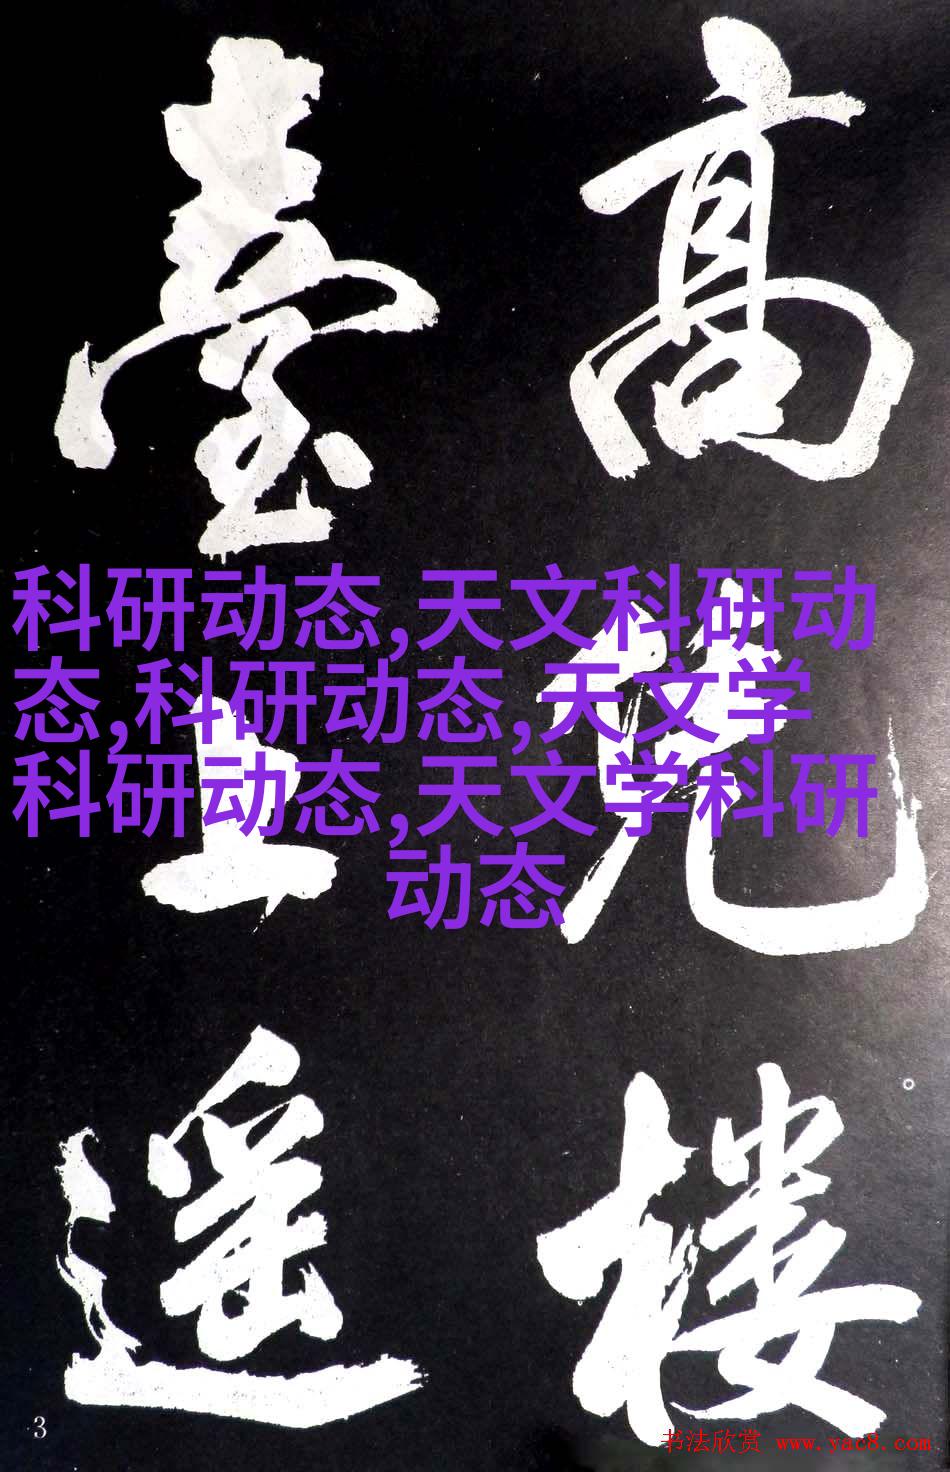 高
楼
臺上遥
科研动态,天文科研动
态,科研动态,天文学
科研动态,天文学科研
动态
3
书法欣赏 www.yac8.com